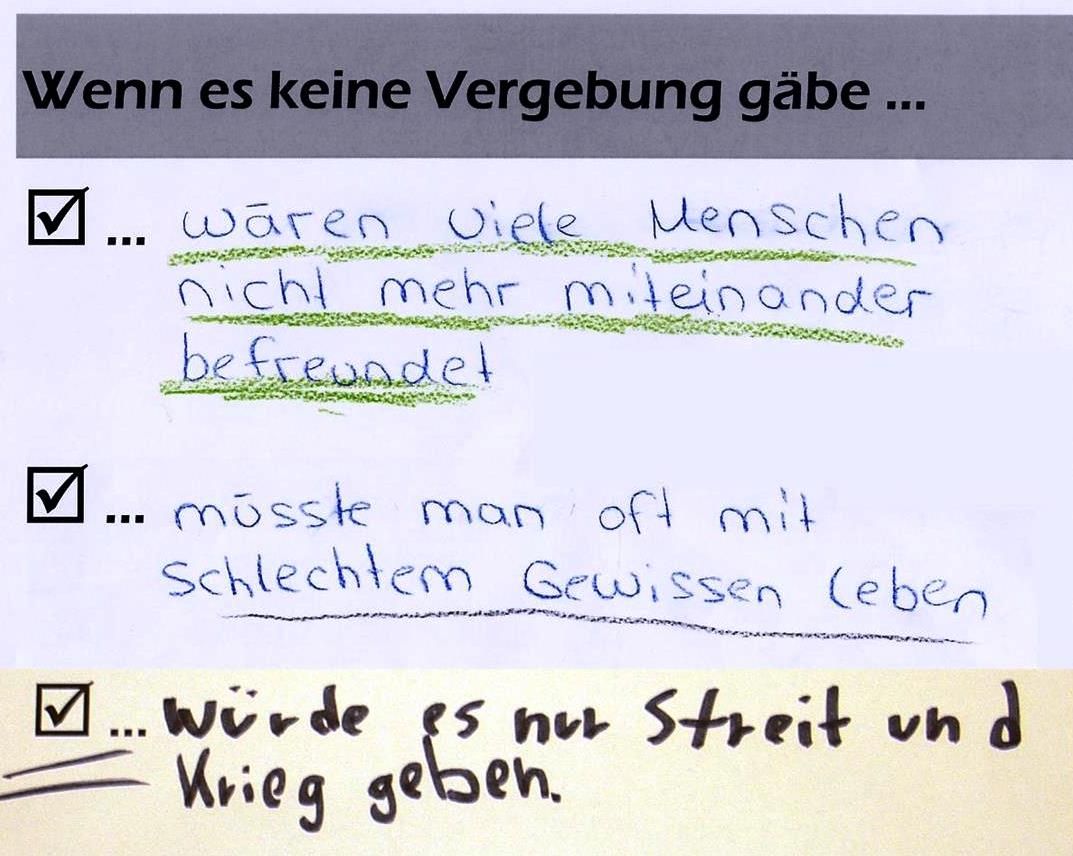 Wenn es keine Vergebung gäbe ...
☑ ... wären viele Menschen
nicht mehr miteinander
befreundet
☑ ... müsste man oft mit
schlechtem Gewissen leben
☑ ... würde es nur Streit und
Krieg geben.